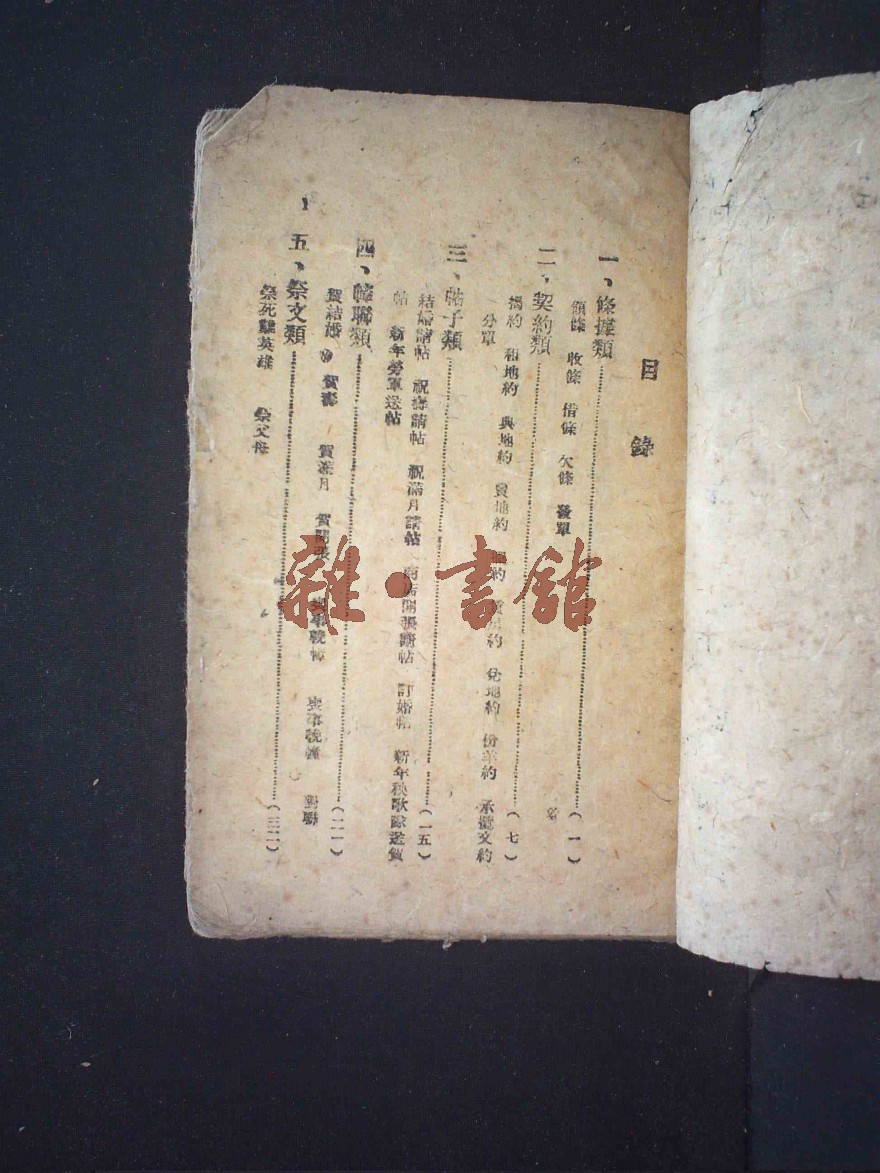 目錄
一、條據類……(一)
領條 收條 借條 欠條 發單
二、契約類……(七)
揭約 租地約 典地約 賣地約 約 約 兌地約 份羊約 承攬文約
分單
三、帖子類……(一五)
結婚請帖 祝壽請帖 祝滿月請帖 商店開張請帖 訂婚帖 新年秧歌隊送賀
帖 新年勞軍送帖
四、幛聯類……(二一)
賀結婚 賀壽 賀滿月 賀開張 喪事輓幛 對聯
五、祭文類……(三二)
祭死難英雄 祭父母
雜·書館